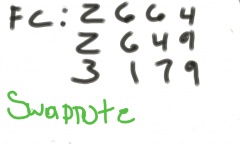 FC: 2664
2649
3179
Swapnote